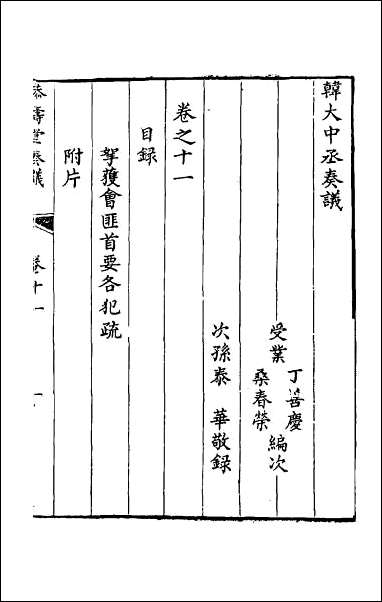 韓大中丞奏議
受業 丁善慶 編次
桑春榮
次孫泰 華敬録
卷之十一
目録
拏獲會匪首要各犯疏
附片
恭壽堂奏議
卷十一
一